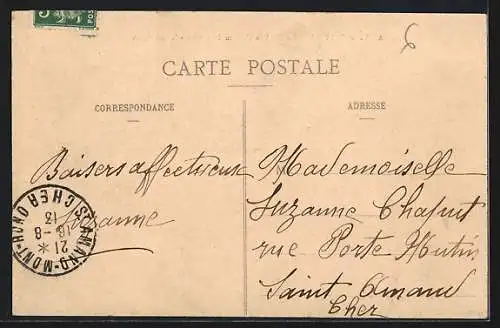 CARTE POSTALE
CORRESPONDANCE
ADRESSE
6
Baisers affectueux
Suzanne
Mademoiselle
Suzanne Chapuit
rue Porte Mutin
Saint Amand
Cher
St AMAND-MONT-ROND
CHER
21 *
16-8
13
5
POS